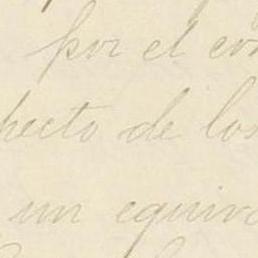 por el con
pecto de los
un equivo